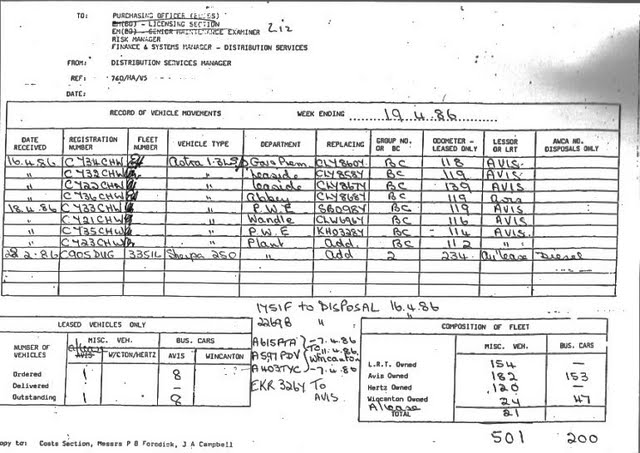 TO: PURCHASING OFFICER
EM(BO) - LICENSING SECTION
EM(BO) - SENIOR MAINTENANCE EXAMINER
RISK MANAGER
FINANCE & SYSTEMS MANAGER - DISTRIBUTION SERVICES
FROM: DISTRIBUTION SERVICES MANAGER
REF: 740/MA/VS
DATE:
RECORD OF VEHICLE MOVEMENTS WEEK ENDING 19.4.86
DATE RECEIVED REGISTRATION NUMBER FLEET NUMBER VEHICLE TYPE DEPARTMENT REPLACING GROUP NO. OR BC ODOMETER - LEASED ONLY LESSOR OR LRT AWCA NO. DISPOSALS ONLY
16.4.86 C734CHW Astra 1.3L Gas Prem. CLY860Y BC 118 AVIS
" C732CHW " Leaside CLY858Y BC 119 AVIS
" C722CHW " Leaside CLY867Y BC 139 AVIS
" C736CHW " Abbey CLY868Y BC 119 Avis
18.4.86 C733CHW " P.W.E BC 119 AVIS
" C721CHW " Wandle BC 116 AVIS
" C735CHW " P.W.E KHO328Y BC 114 AVIS
" C723CHW " Plant Add. BC 112 "
28.2.86 C905DUG 3351L Sherpa 250 " Add 2 234 A/lease Diesel
1751F to DISPOSAL 16.4.86
2269B "
A615ATA - 7.4.86
A597PDV To 11.4.86
A403TYC Wincanton - 7.4.86
EKR 326Y To AVIS
LEASED VEHICLES ONLY
NUMBER OF VEHICLES MISC. VEH. BUS. CARS
A/lease AVIS W/CTON/HERTZ AVIS WINCANTON
Ordered 1 8
Delivered - -
Outstanding 1 8
COMPOSITION OF FLEET
MISC. VEH. BUS. CARS
L.R.T. Owned 154 -
Avis Owned 182 153
Hertz Owned 120 -
Wincanton Owned 24 47
A/lease 21
TOTAL
501 200
Copy to: Costs Section, Messrs P B Forodick, J A Campbell